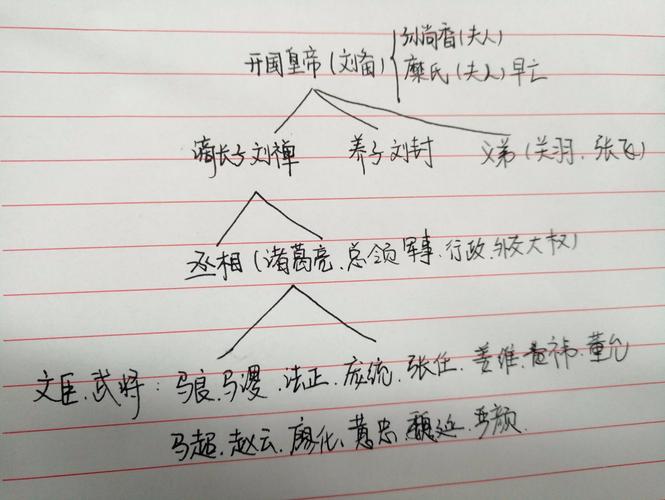 孙尚香(夫人)
开国皇帝(刘备)
糜氏(夫人)早亡
嫡长子刘禅 养子刘封 义弟(关羽、张飞)
丞相(诸葛亮、总领军事、行政、外交大权)
文臣、武将:马良、马谡、法正、庞统、张任、姜维、费祎、董允
马超、赵云、廖化、黄忠、魏延、严颜